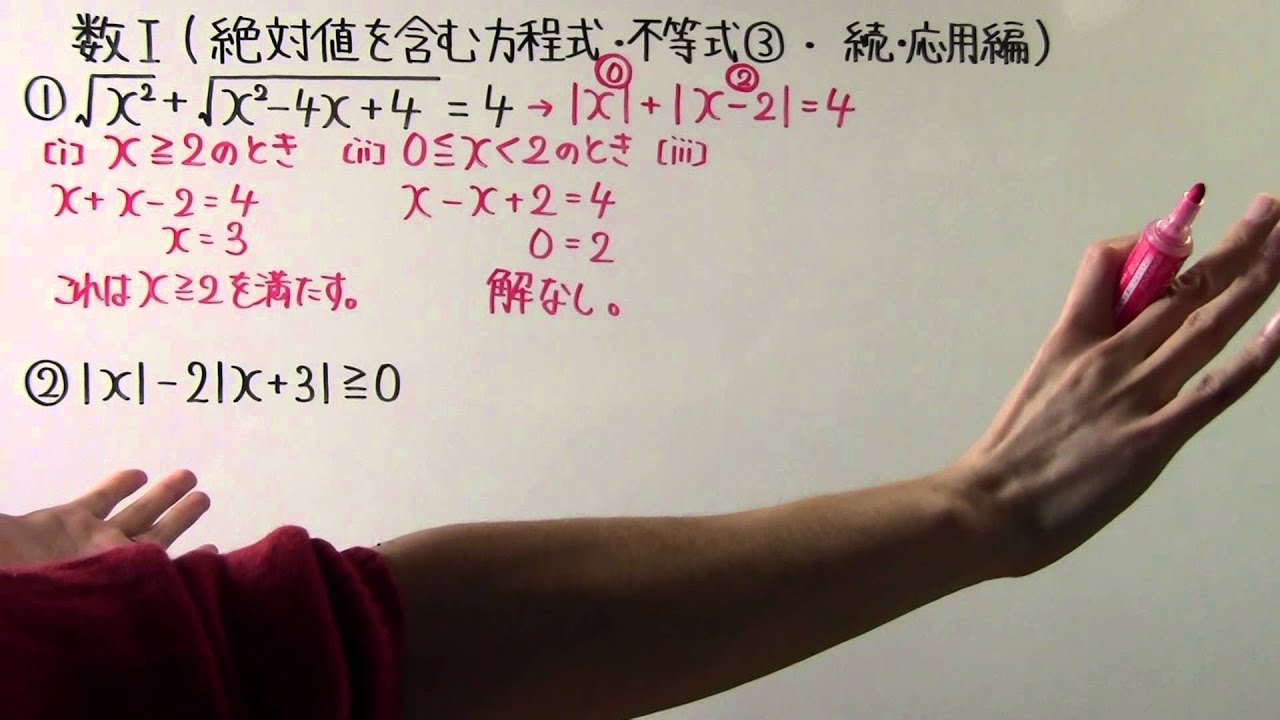 数Ⅰ(絶対値を含む方程式・不等式③・続・応用編)
①√x²+√x²-4x+4 =4→|x|+|x-2|=4
⓪ ②
[i] x≧2のとき [ii] 0≦x<2のとき [iii]
x+x-2=4 x-x+2=4
x=3 0=2
これはx≧2を満たす。 解なし。
②|x|-2|x+3|≧0